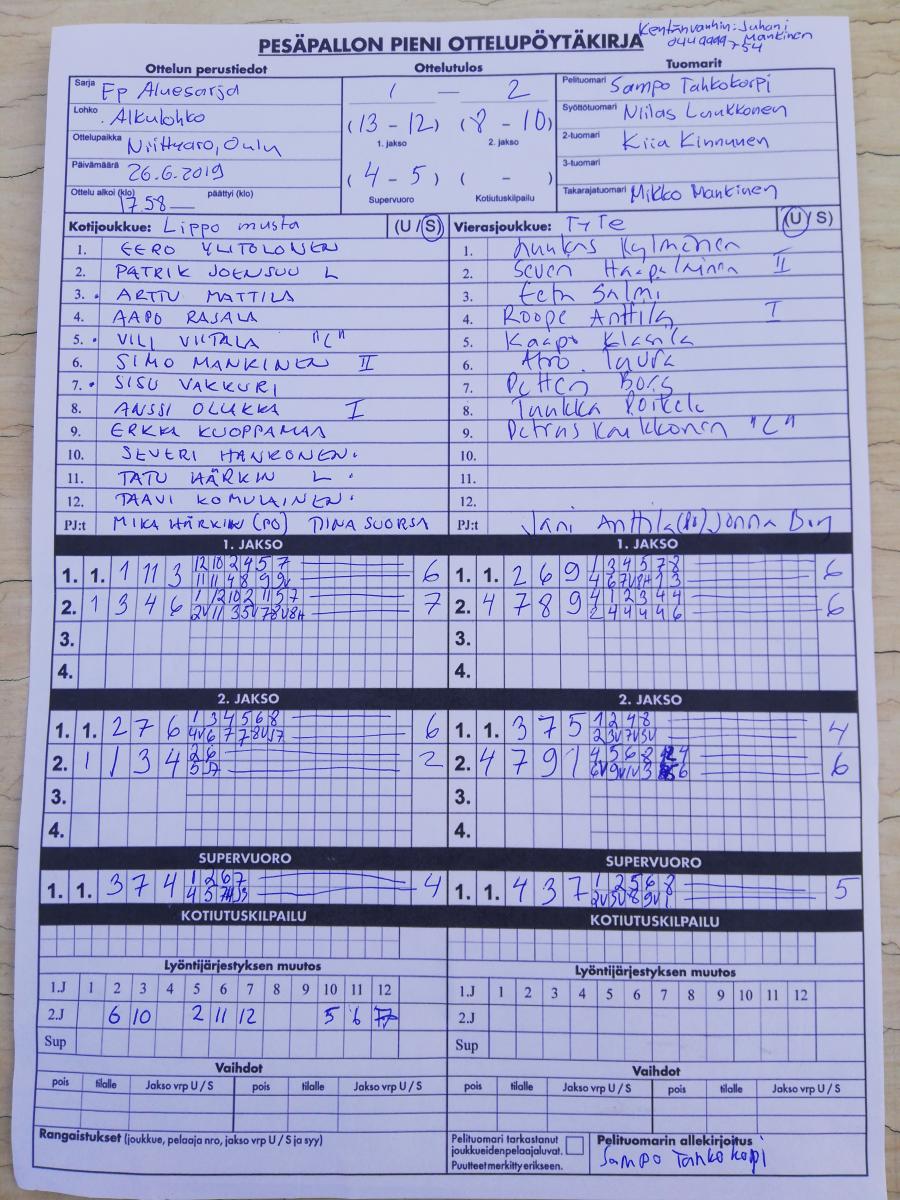 Kentänvanhin: Juhani
Mankinen
PESÄPALLON PIENI OTTELUPÖYTÄKIRJA
Ottelun perustiedot Ottelutulos Tuomarit
Sarja Ep Aluesarja 1 — 2 Pelituomari Sampo Tahkokorpi
Lohko Alkulohko (13 - 12) (8 - 10) Syöttötuomari Niilas Luukkonen
1. jakso 2. jakso
Ottelupaikka Niittyaro, Oulu 2-tuomari Kiia Kinnunen
Päivämäärä 26.6.2019 (4 - 5) ( - ) 3-tuomari
Ottelu alkoi (klo) 17.58 — päättyi (klo) Supervuoro Kotiutuskilpailu Takarajatuomari Mikko Mankinen
Kotijoukkue: Lippo musta (U / S) Vierasjoukkue: TyTe (U / S)
1. EERO YLITOLONEN 1. Luukas Kylmänen
2. PATRIK JOENSUU L 2. Seven Haapalainen II
3. ARTTU MATTILA 3. Eetu Salmi
4. AAPO RASALA 4. Roope Anttila I
5. VILI VIITALA "C" 5. Kaapo Klasila
6. SIMO MANKINEN II 6.
7. SISU VAKKURI 7.
8. ANSSI OLUKKA I 8. Tuukka
9. ERKKA KUOPPAMAA 9. Petrus Kaukkonen "C"
10. SEVERI HANKONEN 10.
11. TATU HÄRKIN L 11.
12. TAAVI KOMULAINEN 12.
PJ:t MIKA HÄRKIN (PJ) TIINA SUORSA PJ:t Jani Anttila Jonna
1. JAKSO 1. JAKSO
1. 1. 1 11 3 12 10 2 4 5 7 6 1. 1. 2 6 9 1 3 4 5 7 8 6
11 11 4 8 9
2. 1 3 4 6 1 12 10 2 11 5 7 7 2. 4 7 8 9 4 1 2 3 4 4 6
2 4 4 4 4 6
3. 3.
4. 4.
2. JAKSO 2. JAKSO
1. 1. 2 7 6 1 3 4 5 6 8 6 1. 1. 3 7 5 1 2 4 8 4
2. 1 1 3 4 2 6 2 2. 4 7 9 1 6
3. 3.
4. 4.
SUPERVUORO SUPERVUORO
1. 1. 3 7 4 1 2 6 7 4 1. 1. 4 3 7 1 2 5 6 8 5
KOTIUTUSKILPAILU KOTIUTUSKILPAILU
Lyöntijärjestyksen muutos Lyöntijärjestyksen muutos
1.J 1 2 3 4 5 6 7 8 9 10 11 12 1.J 1 2 3 4 5 6 7 8 9 10 11 12
2.J 6 10 2 11 12 5 6 7 2.J
Sup Sup
Vaihdot Vaihdot
pois tilalle Jakso vrp U / S pois tilalle Jakso vrp U / S pois tilalle Jakso vrp U / S pois tilalle Jakso vrp U / S
Rangaistukset (joukkue, pelaaja nro, jakso vrp U / S ja syy) Pelituomari tarkastanut Pelituomarin allekirjoitus
joukkueiden pelaajaluvat. Sampo Tahkokorpi
Puutteet merkitty erikseen.